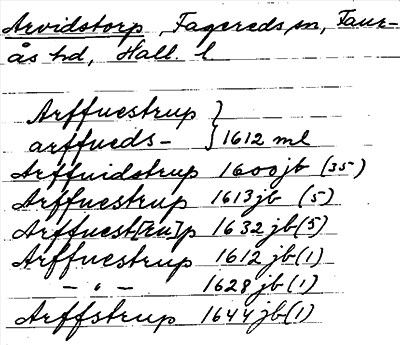 Arvidstorp, Fagereds sn, Faur-
ås hd, Hall. l
Arffuestrup }
arffueds- } 1612 ml
Arffuidstrup 1600 jb (35)
Arffuestrup 1613 jb (5)
Arffuest[ru]p 1632 jb (5)
Arffuestrup 1612 jb (1)
– " – 1628 jb (1)
Arffstrup 1644 jb (1)